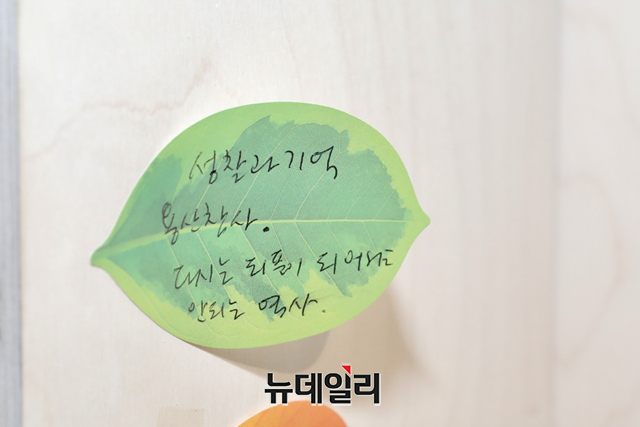 성찰과 기억
용산참사.
다시는 되풀이 되어서는
안되는 역사.
뉴데일리